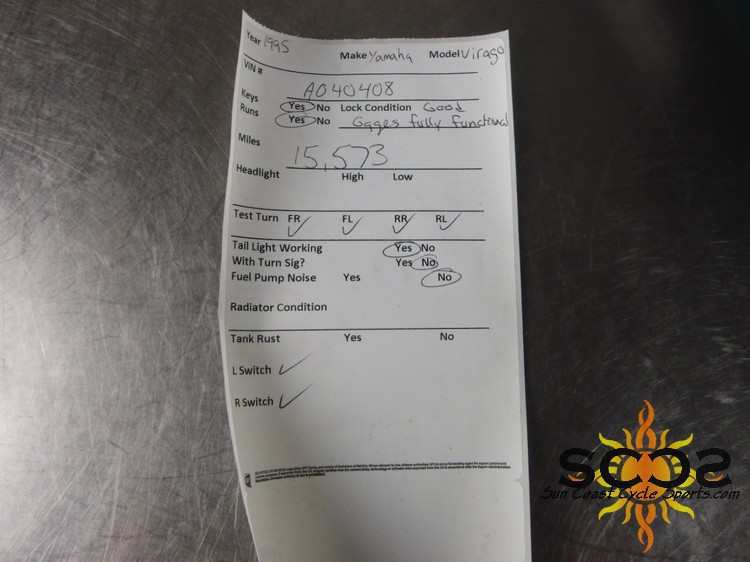 Year 1995 Make Yamaha Model Virago
VIN #
A040408
Keys Yes No Lock Condition Good
Runs Yes No Gages fully functional
Miles 15,573
Headlight High Low
Test Turn FR FL RR RL
Tail Light Working Yes No
With Turn Sig? Yes No
Fuel Pump Noise Yes No
Radiator Condition
Tank Rust Yes No
L Switch
R Switch
SCCS
Sun Coast Cycle Sports.com